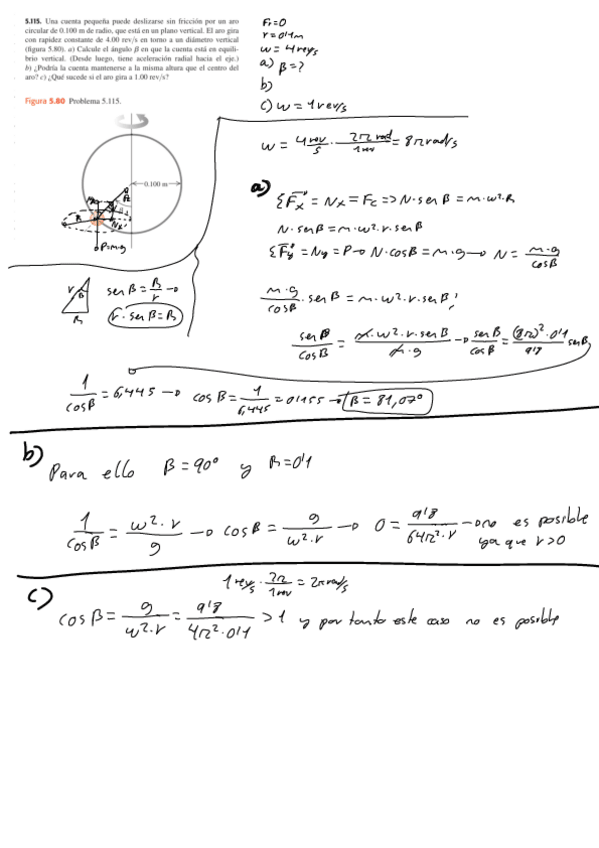 5.115. Una cuenta pequeña puede deslizarse sin fricción por un aro
circular de 0.100 m de radio, que está en un plano vertical. El aro gira
con rapidez constante de 4.00 rev/s en torno a un diámetro vertical
(figura 5.80). a) Calcule el ángulo β en que la cuenta está en equili-
brio vertical. (Desde luego, tiene aceleración radial hacia el eje.)
b) ¿Podría la cuenta mantenerse a la misma altura que el centro del
aro? c) ¿Qué sucede si el aro gira a 1.00 rev/s?
Figura 5.80 Problema 5.115.
0.100 m
P=m·g
Fr=0
r=0'1m
w=4rev/s
a) β=?
b)
c) w=1rev/s
w = 4rev/s · 2π rad/1rev = 8π rad/s
a)
ΣFx = Nx = Fc => N·sen β = m·w²·R
N·sen β = m·w²·r·sen β
ΣFy = Ny = P → N·cos β = m·g → N = m·g/cos β
r β R
sen β = R/r →
r·sen β = R
m·g/cos β · sen β = m·w²·r·sen β;
sen β/cos β = m·w²·r·sen β/m·g → sen β/cos β = (8π)²·0'1/9'8 sen β
1/cos β = 6,445 → cos β = 1/6,445 = 0'155 → β = 81,07°
b)
Para ello β=90° y R=0'1
1/cos β = w²·r/g → cos β = g/w²·r → 0 = 9'8/64π²·r → no es posible
ya que r>0
c)
1 rev/s · 2π/1rev = 2π rad/s
cos β = g/w²·r = 9'8/4π²·0'1 > 1 y por tanto este caso no es posible